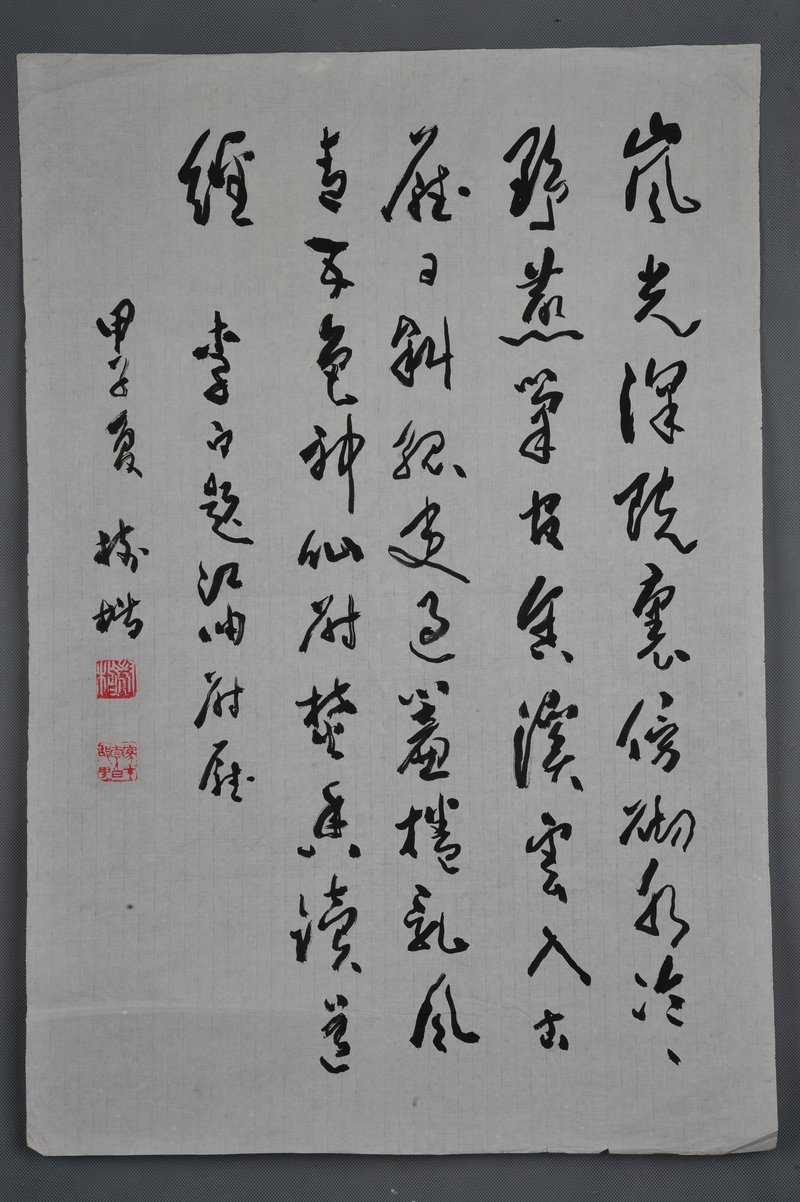 嵐光深院裏傍砌水泠、
野燕巢官舍溪雲入古
廳日斜孤吏過簾捲亂風
青五色神仙尉焚香讀道
經 李白題江油尉廳
甲子夏 樹楷